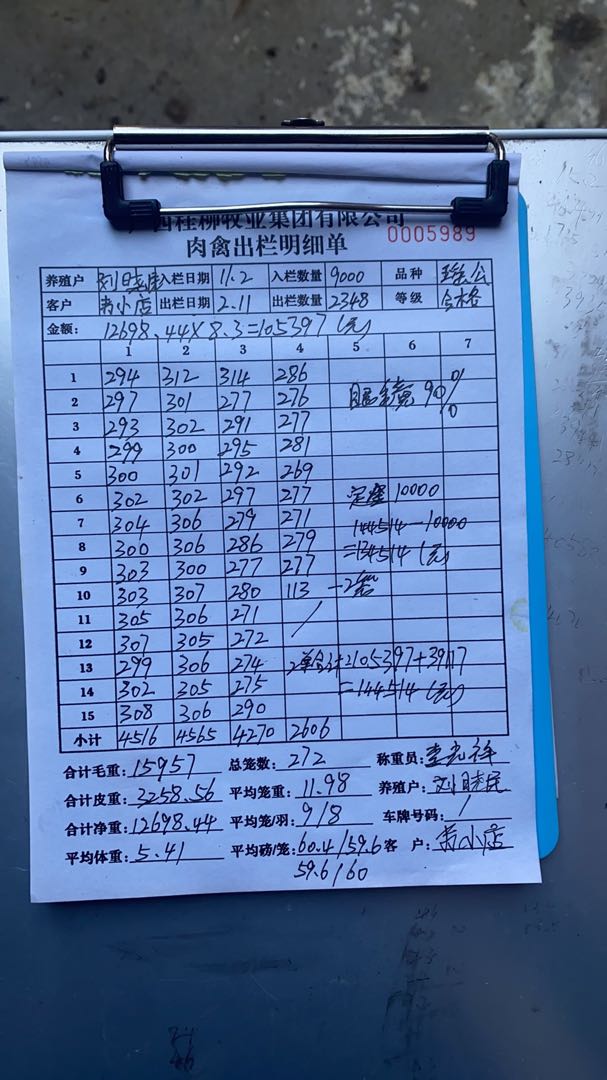 西桂柳牧业集团有限公司
肉禽出栏明细单 0005989
养殖户 入栏日期 11.2 入栏数量 9000 品种
客户 肖小店 出栏日期 2.11 出栏数量 2348 等级 合格
金额: 12698.44×8.3=105397(元)
1 2 3 4 5 6 7
1 294 312 314 286
2 297 301 277 276 90%
3 293 302 291 277
4 299 300 295 281
5 300 301 292 269
6 302 302 297 277 定金 10000
7 304 306 279 271 144514-10000
8 300 306 286 279 =134514(元)
9 303 300 277 277
10 303 307 280 113 -2笼
11 305 306 271 /
12 307 305 272
13 299 306 274 2单合计:105397+39117
14 302 305 275 =144514(元)
15 308 306 290
小计 4516 4565 4270 2606
合计毛重: 15957 总笼数: 272 称重员:
合计皮重: 3258.56 平均笼重: 11.98 养殖户:
合计净重: 12698.44 平均笼/羽: 9/8 车牌号码: /
平均体重: 5.41 平均磅/笼: 60.4/59.6 客 户: 肖小店
59.6/60